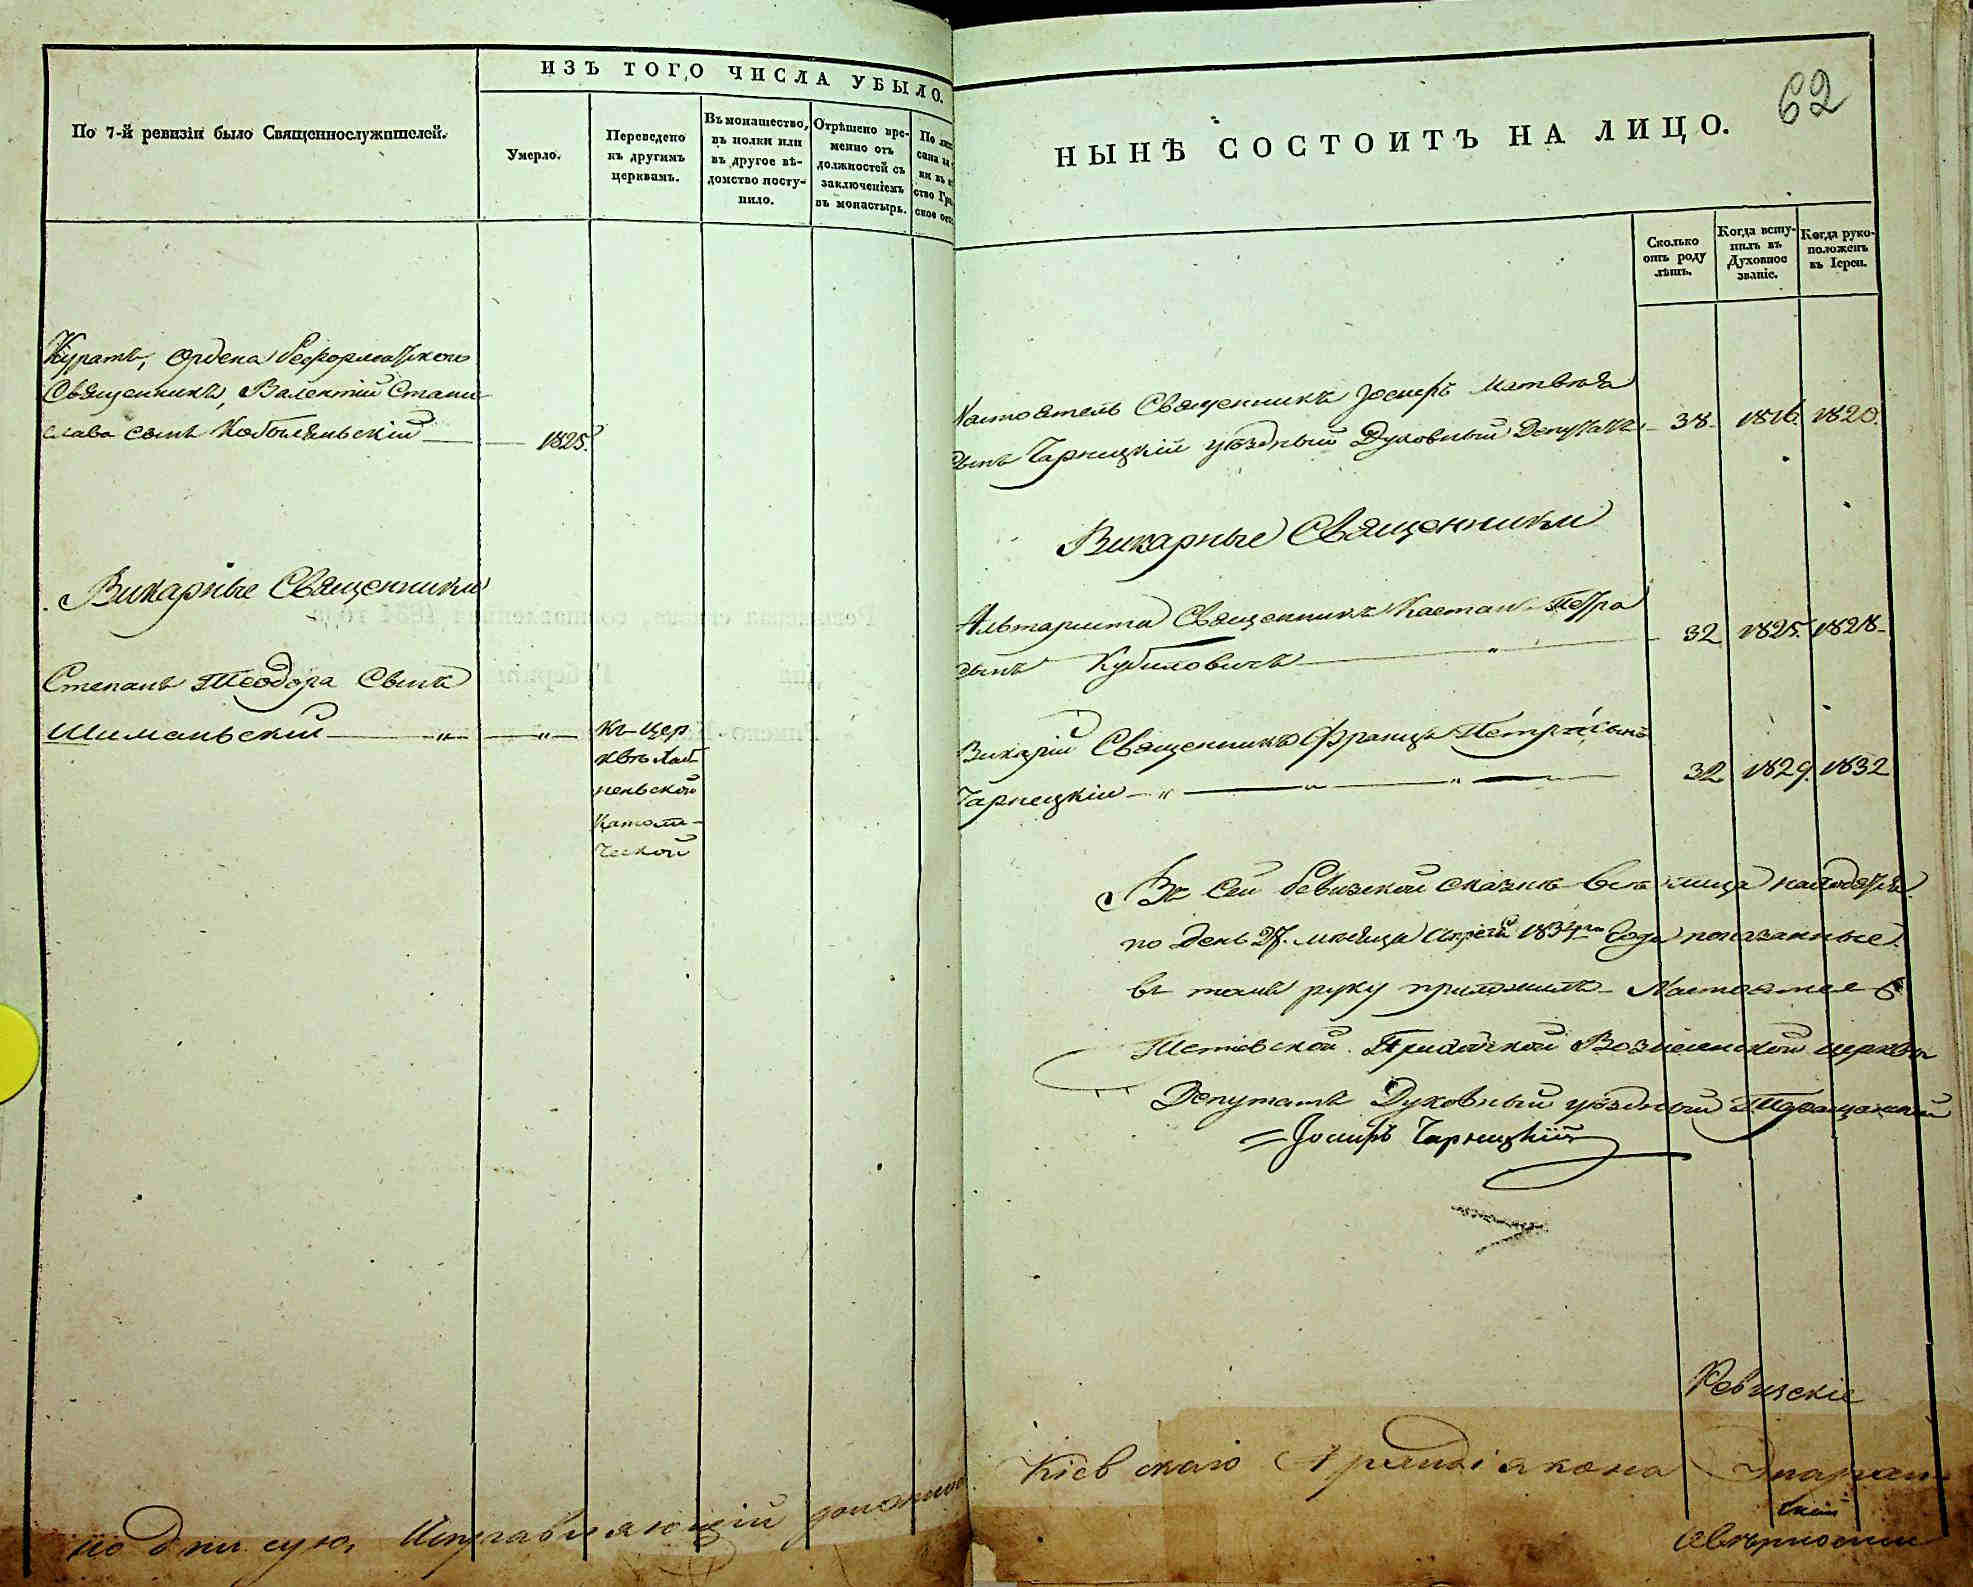 По 7-й ревизіи было Священнослужителей.
ИЗЪ ТОГО ЧИСЛА УБЫЛО.
Умерло.
Переведено
къ другимъ
церквамъ.
Въ монашество,
въ полки или
въ другое вѣ-
домство посту-
пило.
Отрѣшено вре-
менно отъ
должностей съ
заключеніемъ
въ монастырь.
Куратъ, Ордена Реформатского
Священникъ, Валентій Стани
слава сынъ Кобылянскій — 1825.
Викарные Священники
Степанъ Теодора Сынъ
Шиманьскій — „ — „ —
къ цер
квѣ
Католи-
ческой
62
НЫНѢ СОСТОИТЪ НА ЛИЦО.
Сколько
отъ роду
лѣтъ.
Когда всту-
пилъ въ
Духовное
званіе.
Когда руко-
положенъ
въ Іереи.
Настоятель Священникъ Іосифъ Матвѣя
сынъ Чарнецкій уѣздный Духовный Депутатъ — 38. 1816. 1820.
Викарные Священники
Альтариста Священникъ Каетан Петра
сынъ Кубиловичъ — „ — 32 1825. 1828.
Викарій Священникъ Францъ Петра сынъ
Чарнецкій — „ — „ — „ — 32 1829. 1832
Въ сей ревизской сказкѣ всѣ лица находятся
по день 27. мѣсяца Апрѣля 1834го года показанные.
въ томъ руку приложилъ Настоятель
Тетіевской Вознесенской церкви
Депутатъ Духовный уѣздный Таращанскій
Іосифъ Чарнецкій
Ревизскіе
подписую. Исправляющій должность
Кіевскаго Архидіакона